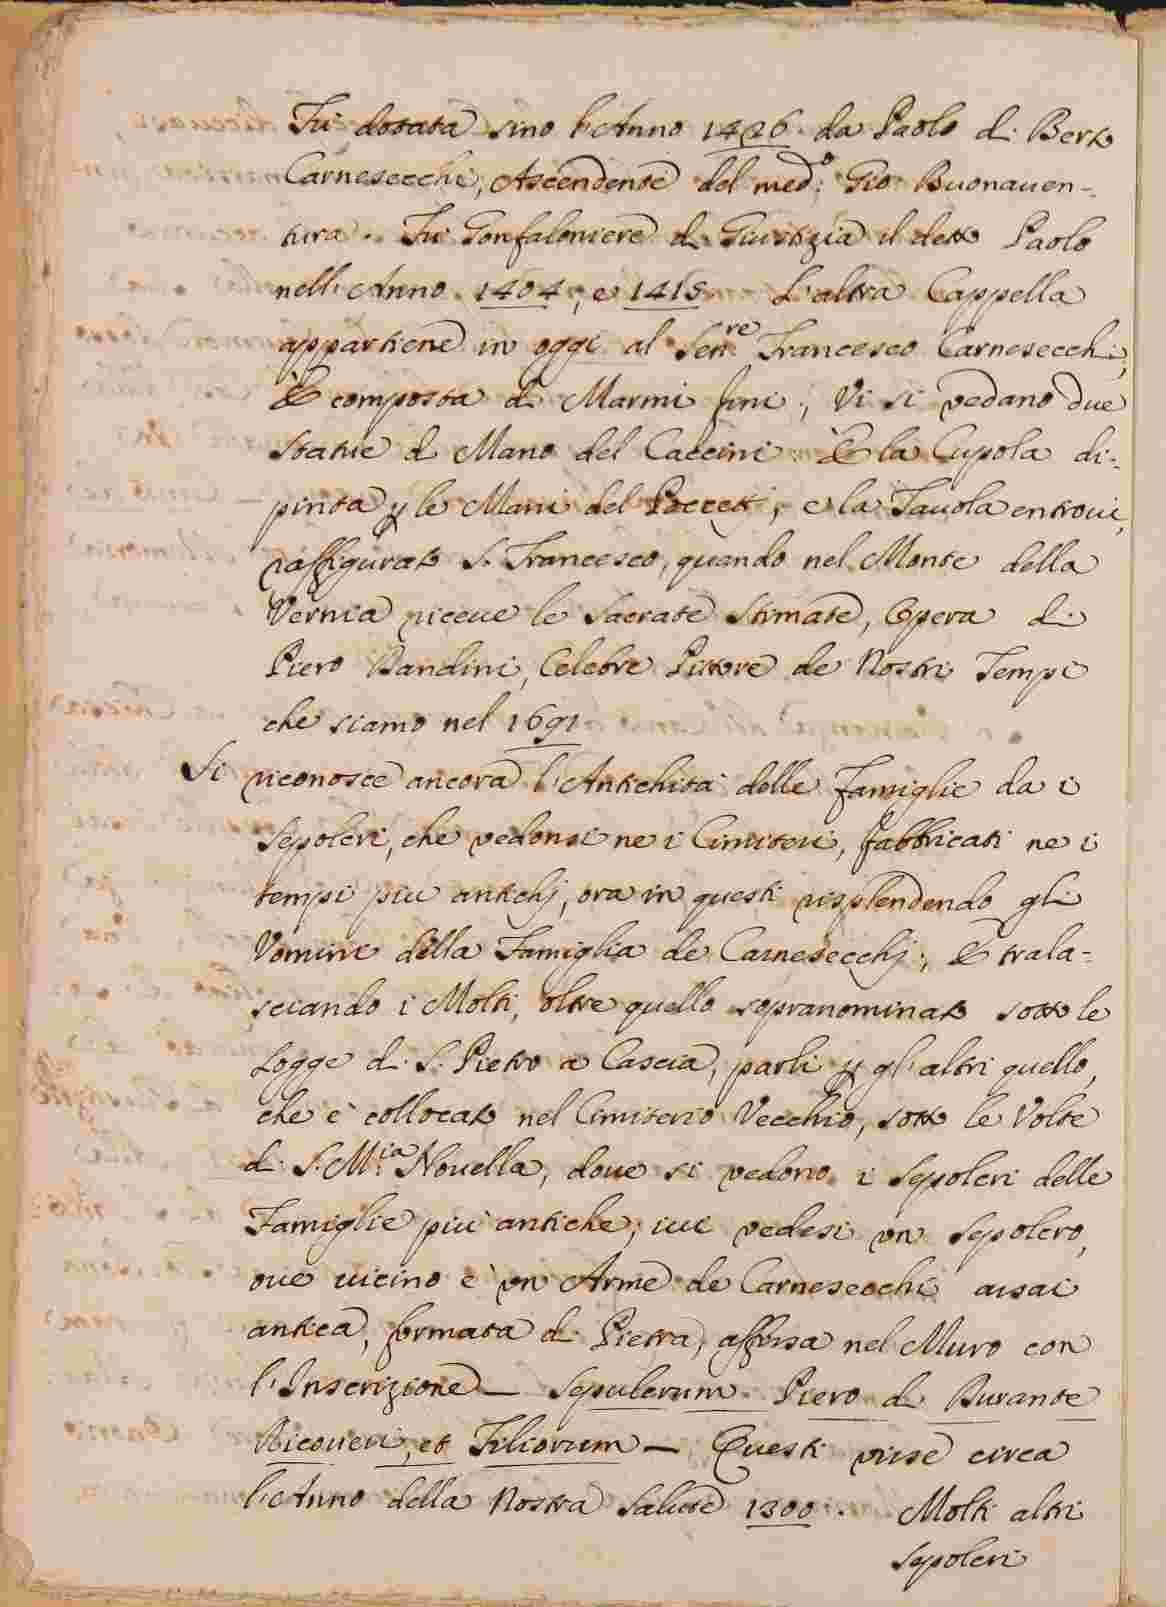 Fù dotata sino l'Anno 1426. da Paolo di Berto
Carnesecchi, Ascendente del med:o Gio: Buonauen-
tura. Fù Gonfaloniere di Giustizia il detto Paolo
nell'Anno 1404, e 1415. L'altra Cappella
appartiene in oggi al Sen:re Francesco Carnesecchi;
È composta di Marmi fini; Vi si vedano due
statue di Mano del Caccini. È la Cupola di-
pinta p le Mani del Poccetti, e la Tauola entroui,
raffigurato S. Francesco, quando nel Monte della
Vernia riceue le Sacrate Stimate, Opera di
Piero Dandini, Celebre Pittore de Nostri Tempi
che siamo nel 1691
Si riconosce ancora l'Antichità delle Famiglie da i
Sepolcri, che vedonsi ne i Cimiteri, fabbricati ne i
tempi più antichj, ora in questi risplendendo gli
Vomini della Famiglia de Carnesecchj; E trala-
sciando i Molti, oltre quello sopranominato sotto le
Logge di S. Pietro a Cascia, parli p gl'altri quello,
che è collocato nel Cimiterio Vecchio, sotto le Volte
di S. M:ia Nouella, doue si vedono i Sepolcri delle
Famiglie più antiche; iui vedesi vn Sepolcro,
oue uicino è vn Arme de Carnesecchi assai
antica, formata di Pietra, affissa nel Muro con
l'Inscrizione — Sepulcrum Piero di Durante
Ricoueri, et Filiorum — Questi visse circa
l'Anno della Nostra Salute 1300. Molti altri
Sepolcri